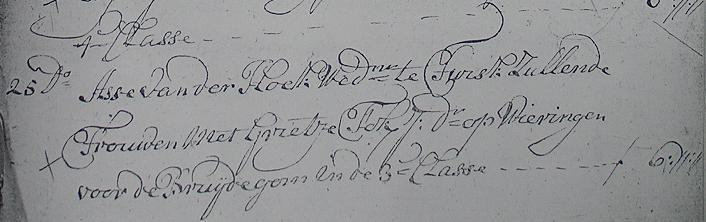 4 Classe
25 Do Asse van der Hoek Wednr te Twisk Zullende
Trouwen Met Grietze J: Dr op Wieringen
voor de Bruijdegom in de 3e Classe f 6: